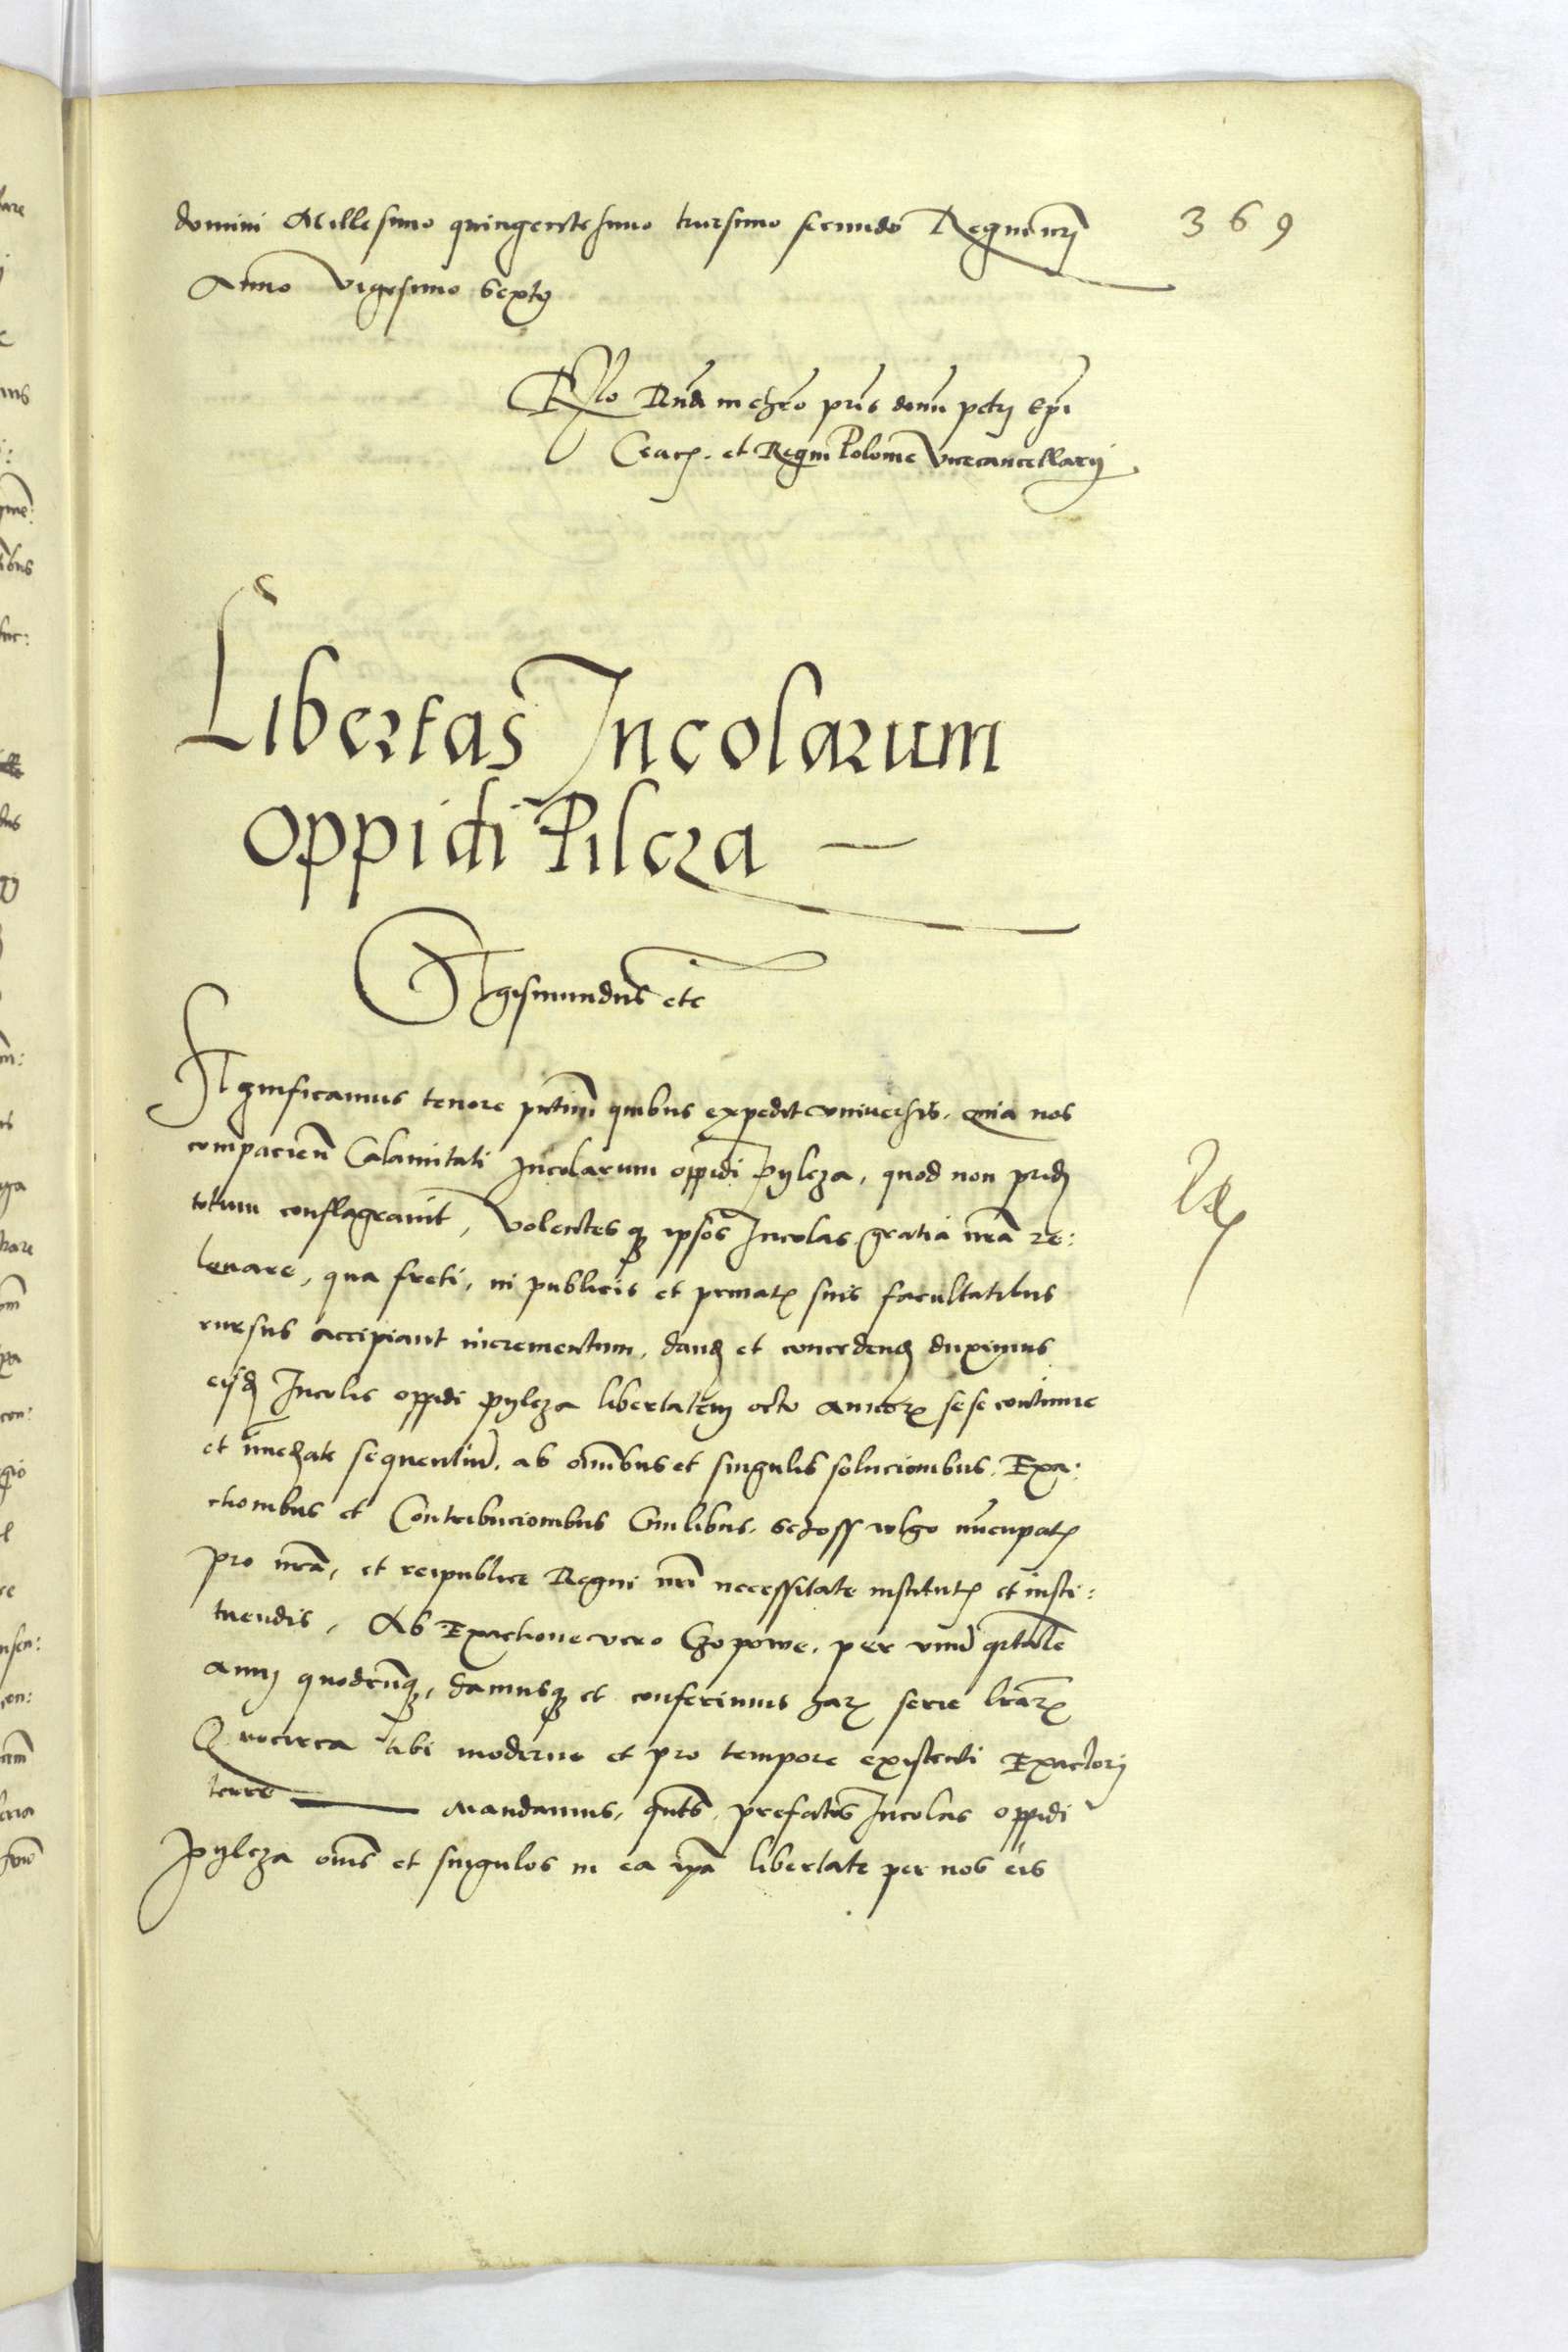 domini Millesimo quingentesimo tricesimo secundo Regni nri
369
Anno vigesimo Sexto
Rlo Rndi in chro pris domi petri Epi
Crac. et Regni Polonie Vicecancellarij
Libertas Incolarum
oppidi Pilcza
Sigismundus etc
Significamus tenore pntium quibus expedit vniversis. quia nos
compacien Calamitati Incolarum oppidi Pylcza, quod non prid
totum conflagravit, Volentesq ipsos Incolas gratia nra re:
levare, qua freti, in publicis et privat suis facultatibus
rursus accipiant incrementum, dand et concedend duximus
eisd Incolis oppidi pylcza libertatem octo annor sese continue
et immediate sequentium. ab omnibus et singulis solucionibus. Exa:
ctionibus et Contribucionibus Civilibus. schoss vlgo nuncupat
pro nra, et reipublice Regni nri necessitate institut et insti:
tuendis, Ab Exactione vero Czopowe. per vnu qrtale
anni quodcunq, damusq et conferimus har serie lrar
Quocirca tibi moderno et pro tempore existenti Exactori
terre mandamus, qnts prefatos Incolas oppidi
Pylcza oms et singulos in ea ipa libertate per nos eis